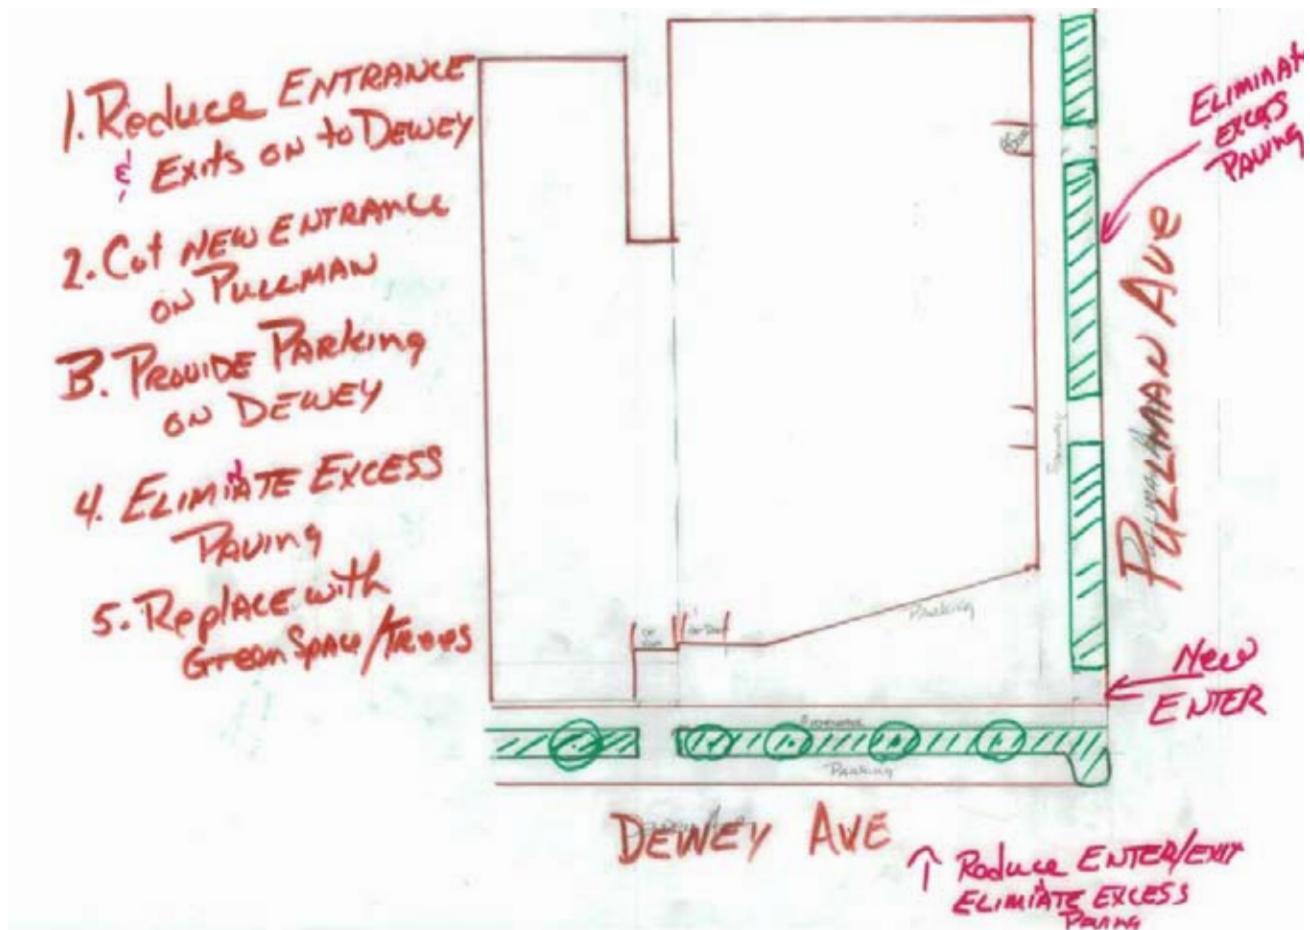 1. Reduce ENTRANCE
& Exits ON to DEWEY
2. Cut NEW ENTRANCE
ON PULLMAN
3. PROVIDE PARKING
ON DEWEY
4. ELIMIATE EXCESS
PAVING
5. Replace with
Green Space/Trees
ELIMINATE
EXCESS
PAVING
PULLMAN AVE
Parking
New
ENTER
Parking
DEWEY AVE
↑ Reduce ENTER/EXIT
ELIMIATE EXCESS
PAVING